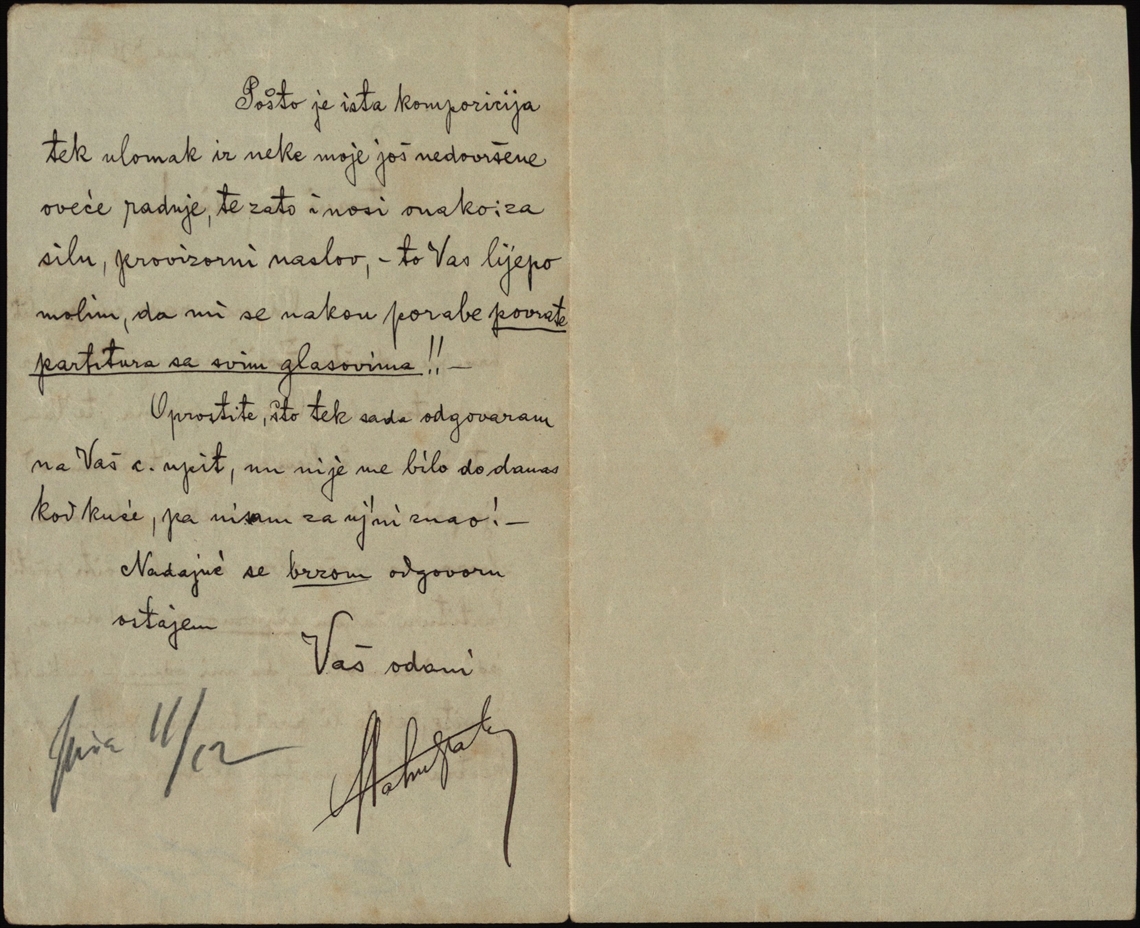 Pošto je ista kompozicija
tek ulomak iz neke moje još nedovršene
oveće radnje, te zato i nosi onako: za
silu, provizorni naslov, - to Vas lijepo
molim, da mi se nakon porabe povrate
partitura sa svim glasovima!! -
Oprostite, što tek sada odgovaram
na Vaš c. upit, nu nije me bilo do danas
kod kuće, pa nisam za nj' ni znao! -
Nadajuć se brzom odgovoru
ostajem
Vaš odani
11/12